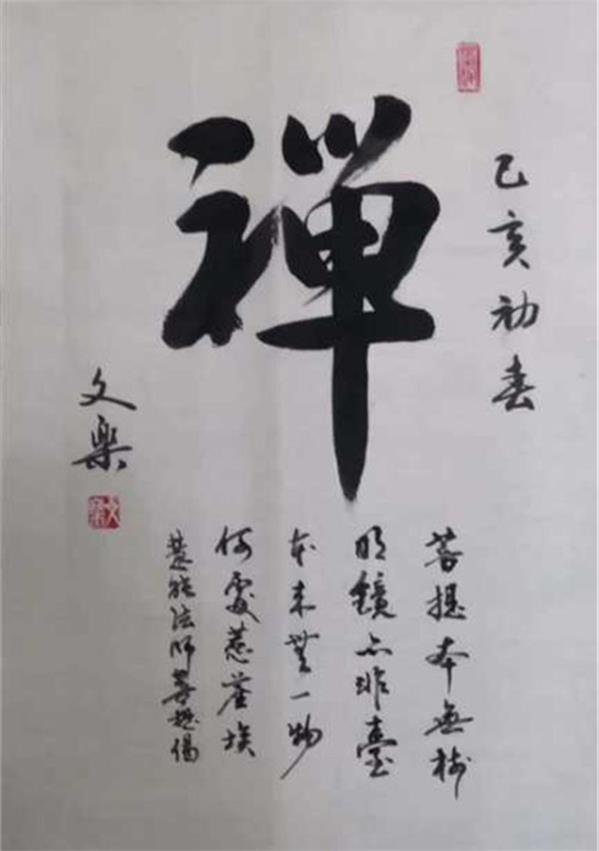 己亥初春
禪
文樂
文樂
菩提本無樹
明鏡亦非臺
本來無一物
何處惹塵埃
慧能法師菩提偈